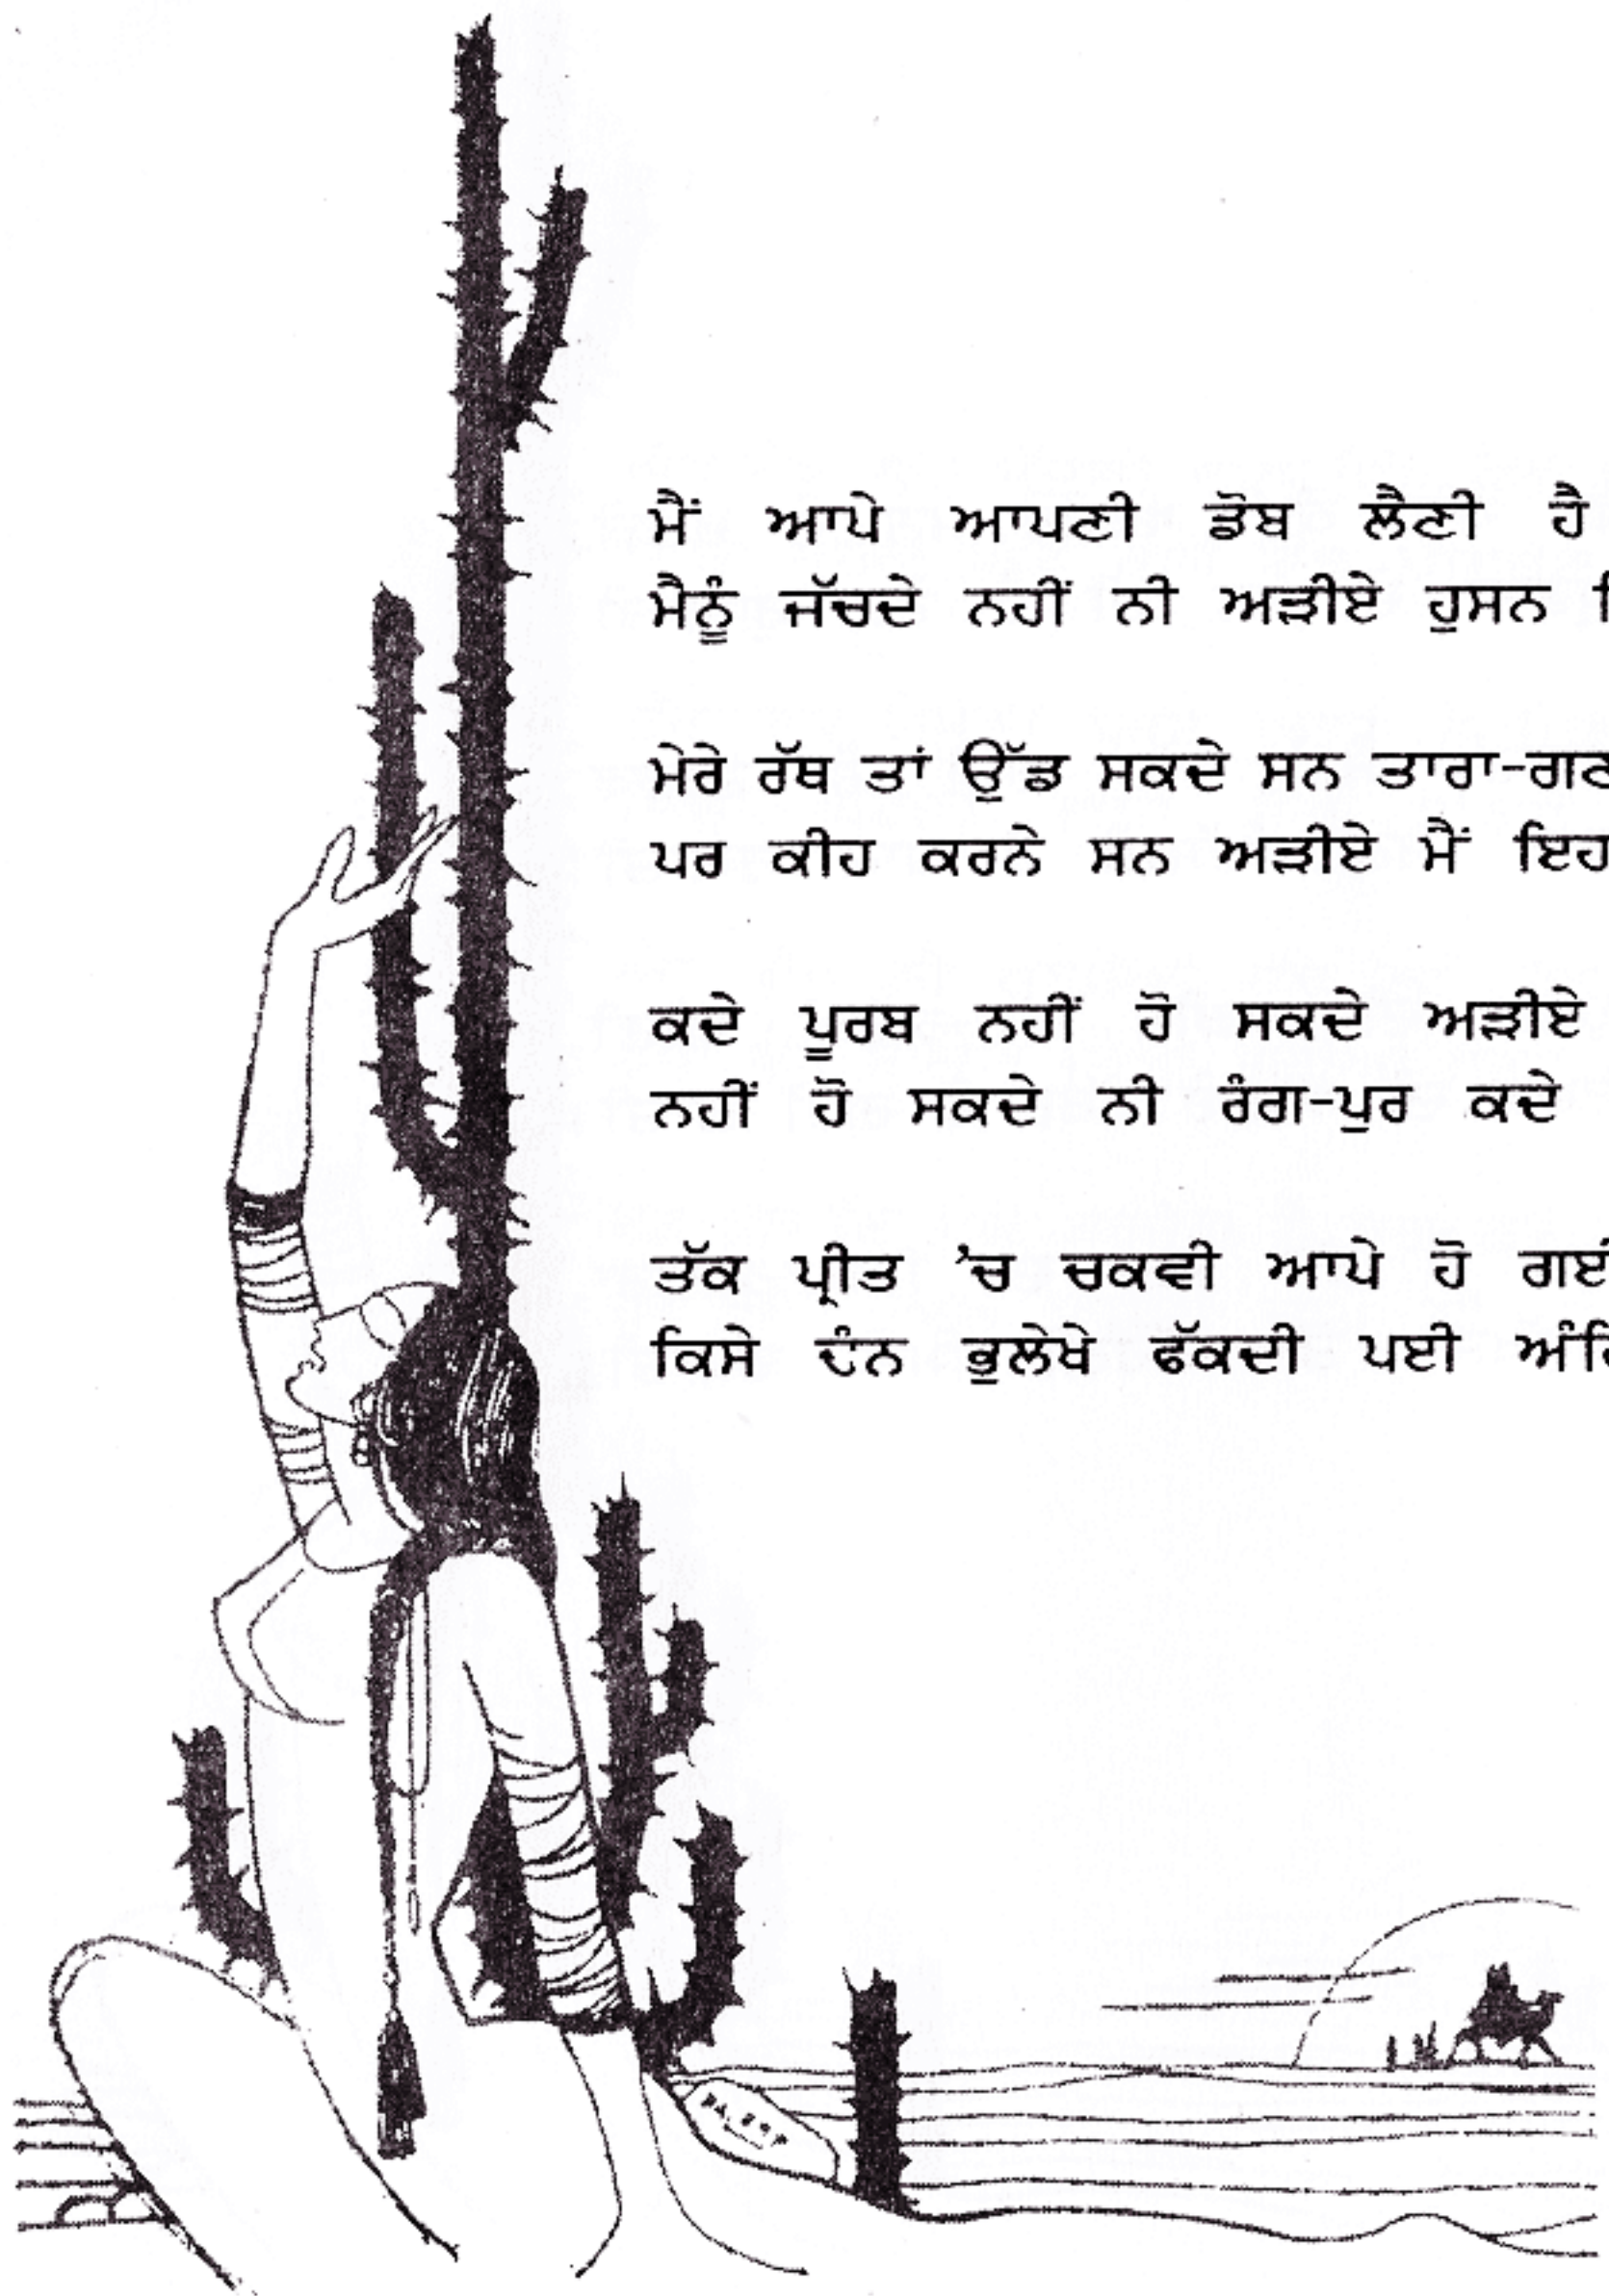 ਮੈਂ ਆਪੇ ਆਪਣੀ ਡੋਬ ਲੈਣੀ ਹੈ
ਮੈਨੂੰ ਜੱਚਦੇ ਨਹੀਂ ਨੀ ਅੜੀਏ ਹੁਸਨ
ਮੇਰੇ ਰੱਥ ਤਾਂ ਉੱਡ ਸਕਦੇ ਸਨ ਤਾਰਾ-ਗਣ
ਪਰ ਕੀਹ ਕਰਨੇ ਸਨ ਅੜੀਏ ਮੈਂ ਇਹ
ਕਦੇ ਪੂਰਬ ਨਹੀਂ ਹੋ ਸਕਦੇ ਅੜੀਏ
ਨਹੀਂ ਹੋ ਸਕਦੇ ਨੀ ਰੰਗ-ਪੁਰ ਕਦੇ
ਤੱਕ ਪ੍ਰੀਤ 'ਚ ਚਕਵੀ ਆਪੇ ਹੋ ਗਈ
ਕਿਸੇ ਚੰਨ ਭੁਲੇਖੇ ਫੱਕਦੀ ਪਈ